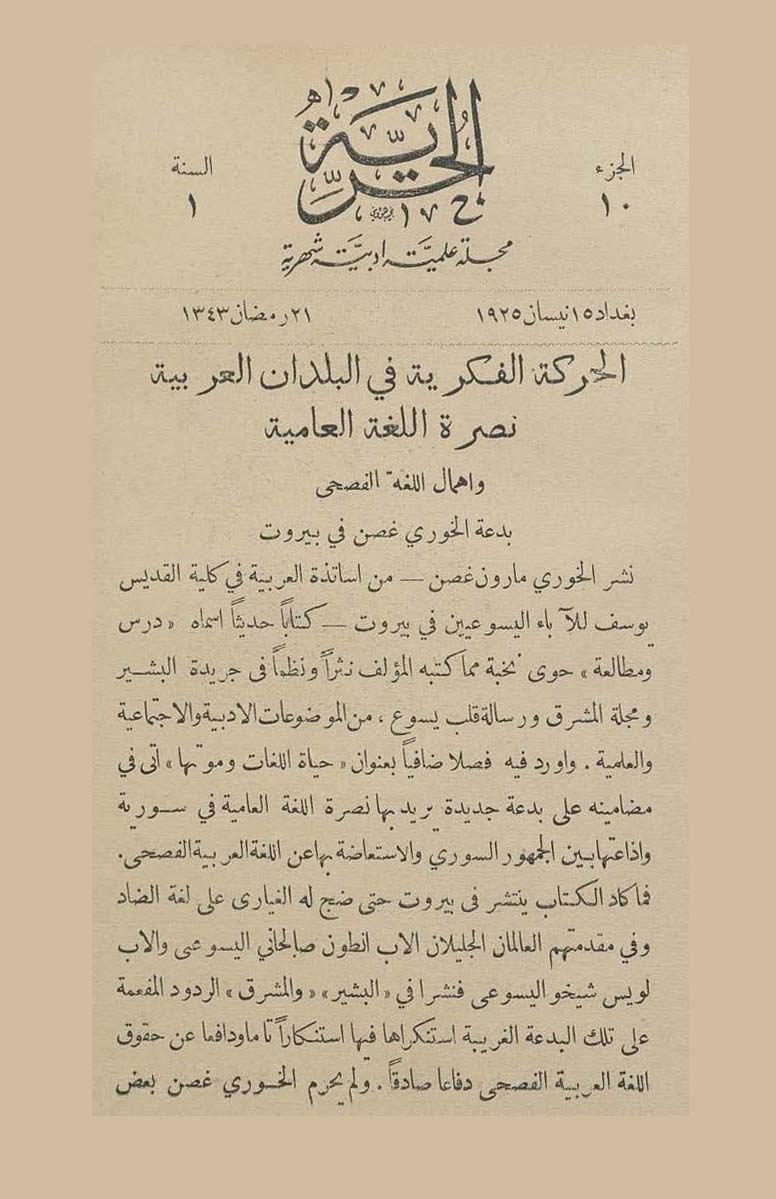 الحرية
الجزء
١٠
السنة
١
مجلة علمية ادبية شهرية
بغداد ١٥ نيسان ١٩٢٥
٢١ رمضان ١٣٤٣
الحركة الفكرية في البلدان العربية
نصرة اللغة العامية
واهمال اللغة الفصحى
بدعة الخوري غصن في بيروت
نشر الخوري مارون غصن — من اساتذة العربية في كلية القديس
يوسف للآباء اليسوعيين في بيروت — كتاباً حديثاً اسماه « درس
ومطالعة » حوى نخبة مما كتبه المؤلف نثراً ونظماً في جريدة البشير
ومجلة المشرق ورسالة قلب يسوع ، من الموضوعات الادبية والاجتماعية
والعلمية . واورد فيه فصلا ضافياً بعنوان « حياة اللغات وموتها » اتى في
مضامينه على بدعة جديدة يريد بها نصرة اللغة العامية في سورية
واذاعتها بين الجمهور السوري والاستعاضة بها عن اللغة العربية الفصحى .
فما كاد الكتاب ينتشر في بيروت حتى ضج له الغيارى على لغة الضاد
وفي مقدمتهم العالمان الجليلان الاب انطون صالحاني اليسوعي والاب
لويس شيخو اليسوعي فنشرا في « البشير » « والمشرق » الردود المفعمة
على تلك البدعة الغريبة استنكراها فيها استنكاراً تاما ودافعا عن حقوق
اللغة العربية الفصحى دفاعا صادقاً . ولم يحرم الخوري غصن بعض